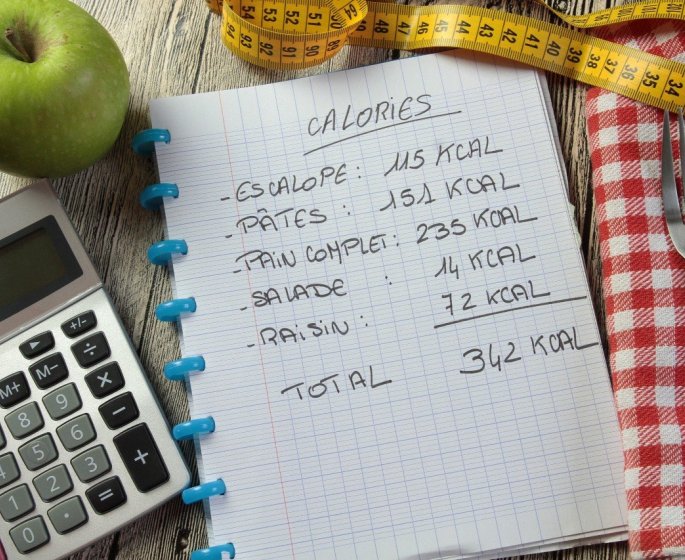 CALORIES
- ESCALOPE : 115 KCAL
- PÂTES : 151 KCAL
- PAIN COMPLET : 235 KCAL
- SALADE : 14 KCAL
- RAISIN : 72 KCAL
TOTAL 342 KCAL
54 53 52 51
93 92 91 90 89
48 47 46 45 44 43 42 41 40 39 38 37 36 35 34
+/-
▶ ÷
M+ M- ×
8 9 -
5 6 +
1 2 3 =
0 .